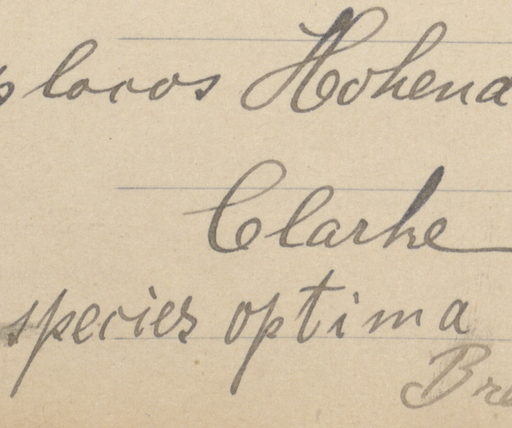 plocos Hohena
Clarke
species optima
Bre